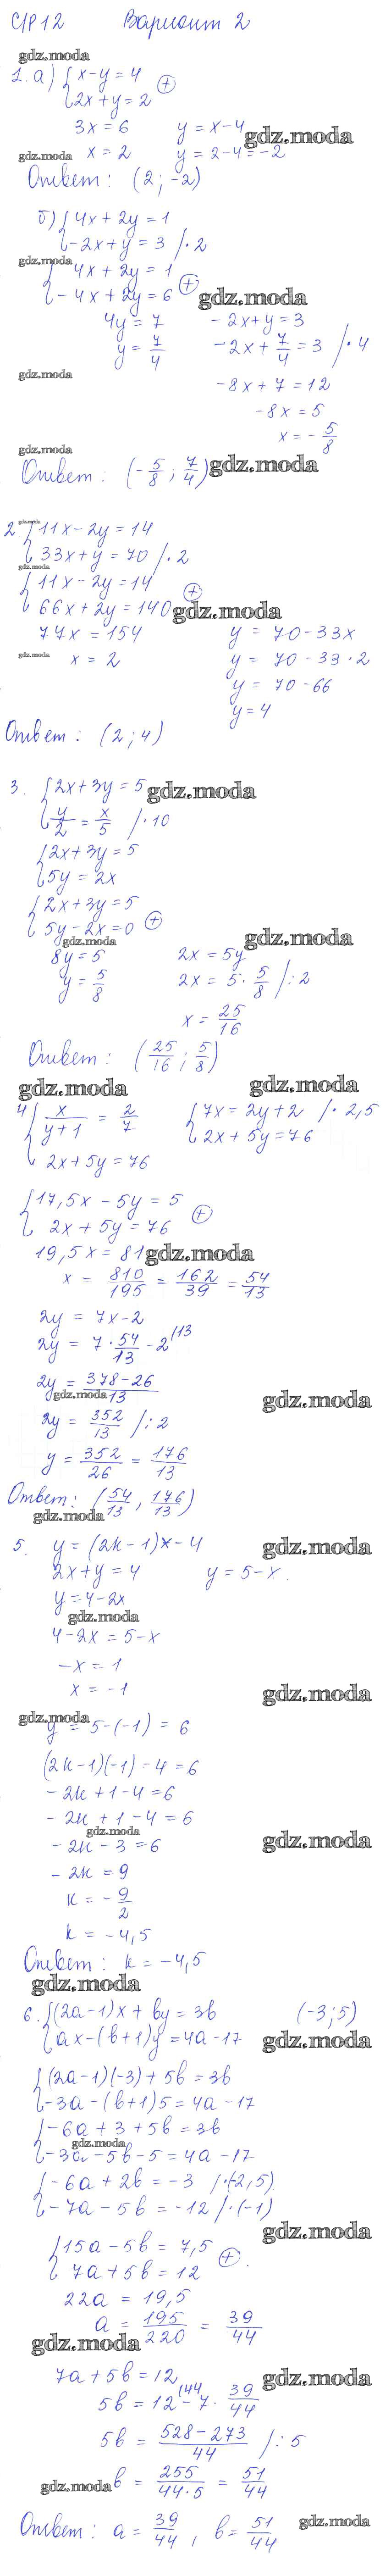 С/Р 12 Вариант 2
gdz.moda
1. а) { x-y=4 (+)
2x+y=2
3x=6 y=x-4
gdz.moda
gdz.moda
x=2 y=2-4=-2
Ответ: (2;-2)
б) { 4x+2y=1
-2x+y=3 /·2
gdz.moda
{ 4x+2y=1 (+)
-4x+2y=6
gdz.moda
4y=7 -2x+y=3
y=7/4 -2x+7/4=3 /·4
gdz.moda
-8x+7=12
-8x=5
x=-5/8
gdz.moda
gdz.moda
Ответ: (-5/8; 7/4)
gdz.moda
2. { 11x-2y=14
33x+y=70 /·2
gdz.moda
{ 11x-2y=14 (+)
66x+2y=140
gdz.moda
77x=154 y=70-33x
gdz.moda
x=2 y=70-33·2
y=70-66
y=4
Ответ: (2;4)
3. { 2x+3y=5
gdz.moda
y/2=x/5 /·10
{ 2x+3y=5
5y=2x
{ 2x+3y=5 (+)
5y-2x=0
gdz.moda
gdz.moda
8y=5 2x=5y
y=5/8 2x=5·5/8 /:2
x=25/16
Ответ: (25/16; 5/8)
gdz.moda
gdz.moda
4 { x/(y+1)=2/7 { 7x=2y+2 /·2,5
2x+5y=76 2x+5y=76
{ 17,5x-5y=5 (+)
2x+5y=76
19,5x=81
gdz.moda
x=810/195=162/39=54/13
2y=7x-2
2y=7·54/13-2 (13
2y=(378-26)/13
gdz.moda
gdz.moda
2y=352/13 /:2
y=352/26=176/13
Ответ: (54/13, 176/13)
gdz.moda
5. y=(2k-1)x-4
gdz.moda
2x+y=4 y=5-x.
y=4-2x
gdz.moda
4-2x=5-x
-x=1
x=-1
gdz.moda
gdz.moda
y=5-(-1)=6
(2k-1)(-1)-4=6
-2k+1-4=6
-2k+1-4=6
gdz.moda
gdz.moda
-2k-3=6
-2k=9
k=-9/2
k=-4,5
Ответ: k=-4,5
gdz.moda
6. { (2a-1)x+by=3b (-3;5)
ax-(b+1)y=4a-17
gdz.moda
{ (2a-1)(-3)+5b=3b
-3a-(b+1)5=4a-17
{ -6a+3+5b=3b
gdz.moda
-3a-5b-5=4a-17
{ -6a+2b=-3 /·(-2,5)
-7a-5b=-12 /·(-1)
gdz.moda
{ 15a-5b=7,5 (+).
7a+5b=12
22a=19,5
a=195/220=39/44
gdz.moda
7a+5b=12
gdz.moda
5b=12 (44-7·39/44
5b=(528-273)/44 /:5
gdz.moda
b=255/(44·5)=51/44
Ответ: a=39/44, b=51/44
gdz.moda